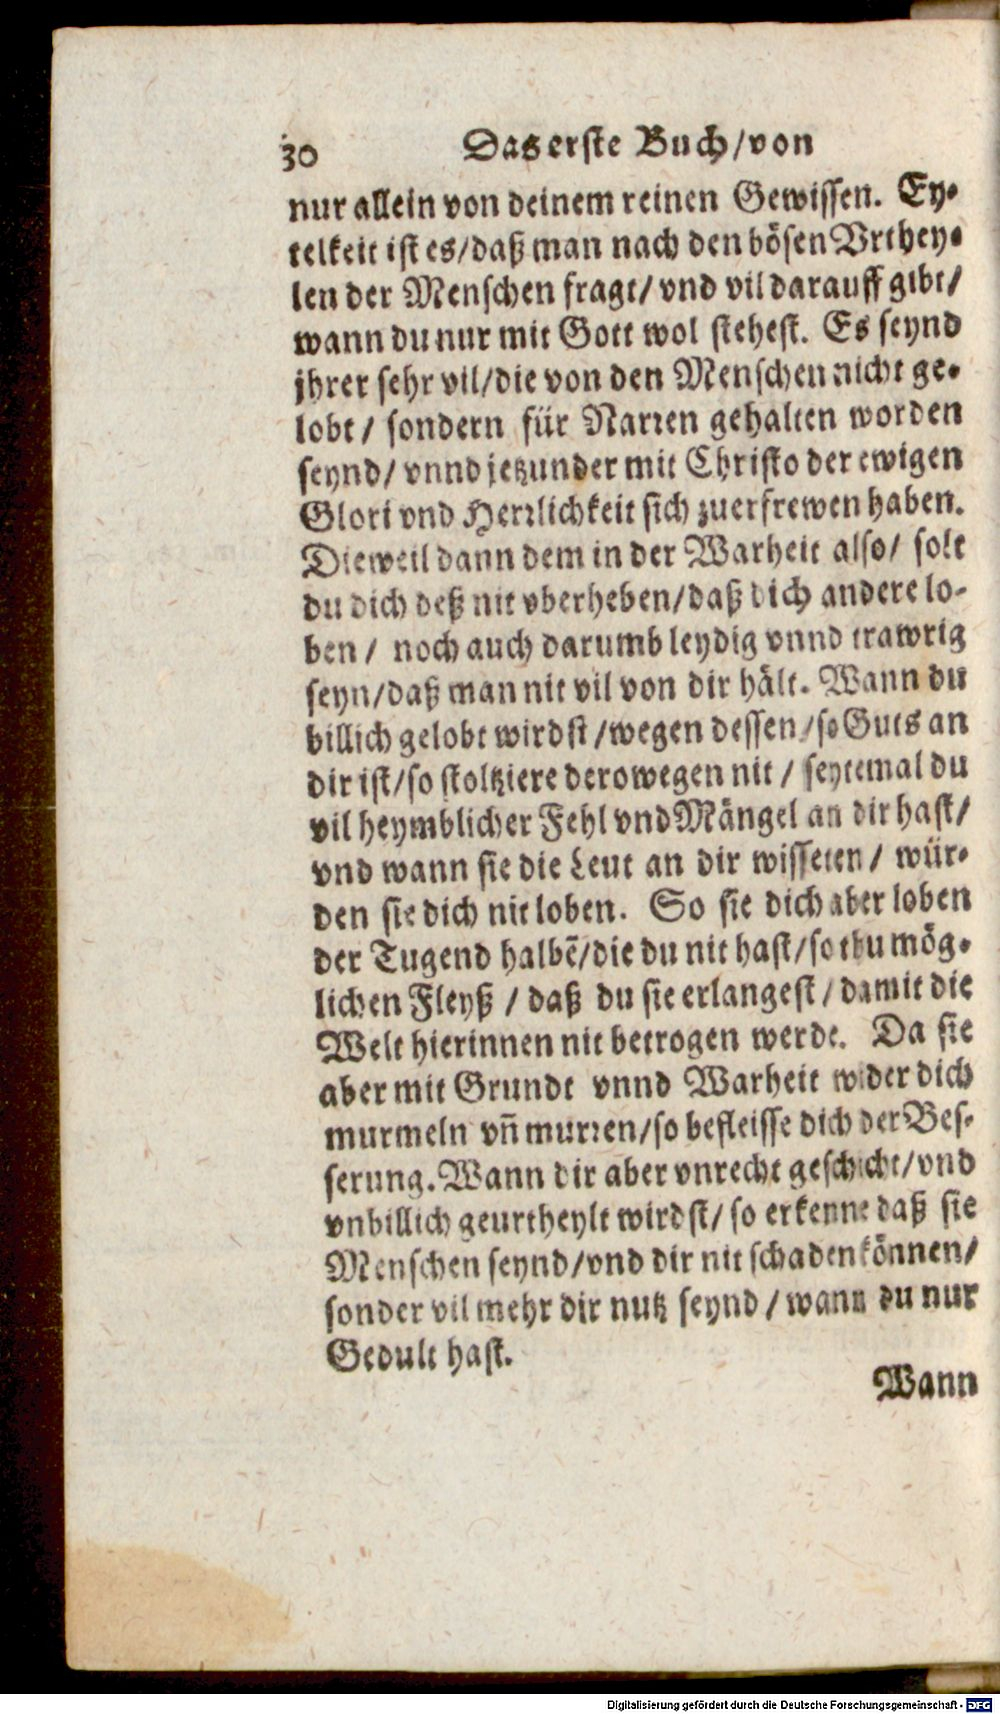 30 Das erste Buch/von
nur allein von deinem reinen Gewissen. Ey-
telkeit ist es/daß man nach den bösen Vrthey-
len der Menschen fragt/ vnd vil darauff gibt/
wann du nur mit Gott wol stehest. Es seynd
jhrer sehr vil/die von den Menschen nicht ge-
lobt/ sondern für Narren gehalten worden
seynd/ vnnd jetzunder mit Christo der ewigen
Glori vnd Herrlichkeit sich zuerfrewen haben.
Dieweil dann dem in der Warheit also/ solt
du dich deß nit vberheben/daß dich andere lo-
ben/ noch auch darumb leydig vnnd trawrig
seyn/daß man nit vil von dir hält. Wann du
billich gelobt wirdst/wegen dessen/so Guts an
dir ist/so stoltziere derowegen nit/ seytemal du
vil heymblicher Fehl vnd Mängel an dir hast/
vnd wann sie die Leut an dir wisseten/ wür-
den sie dich nit loben. So sie dich aber loben
der Tugend halbẽ/die du nit hast/so thu mög-
lichen Fleyß/ daß du sie erlangest/damit die
Welt hierinnen nit betrogen werde. Da sie
aber mit Grundt vnnd Warheit wider dich
murmeln vñ murren/so befleisse dich der Bes-
serung. Wann dir aber vnrecht geschicht/vnd
vnbillich geurtheylt wirdst/ so erkenne daß sie
Menschen seynd/vnd dir nit schaden können/
sonder vil mehr dir nutz seynd/wann du nur
Gedult hast.
Wann
Digitalisierung gefördert durch die Deutsche Forschungsgemeinschaft - DFG